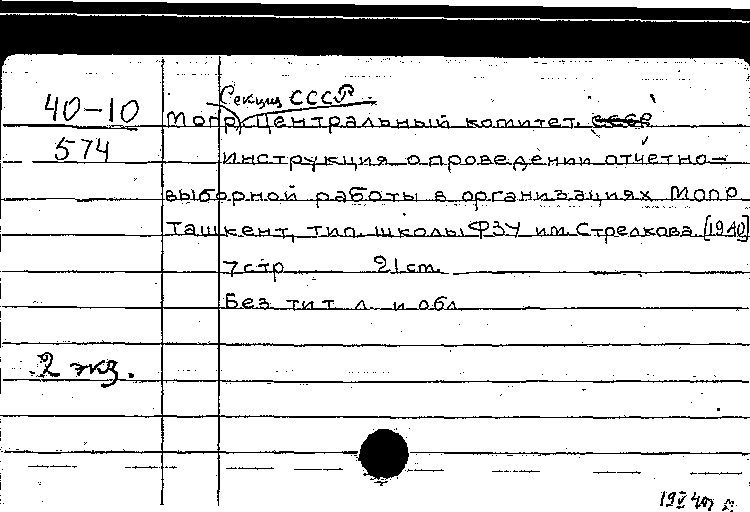 Секция СССР.
40-10 Мопр, Центральный комитет.
574 Инструкция о проведении отчетно-
выборной работы в организациях Мопр
Ташкент, тип. школы ФЗУ им. Стрелкова. [1940]
7 стр 21 cm.
Без тит л. и обл
2 экз.